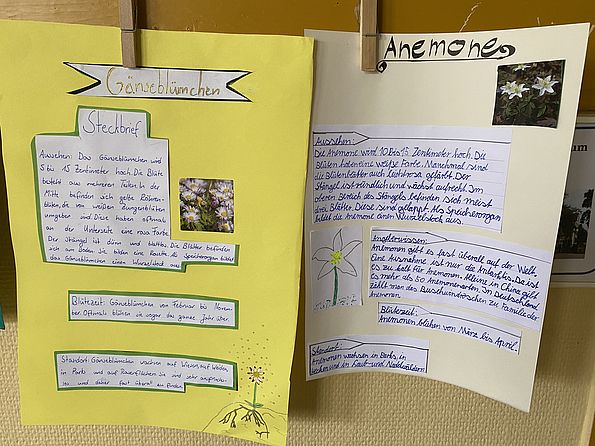 Gänseblümchen
Steckbrief
Aussehen: Das Gänseblümchen wird
5 bis 15 Zentimeter hoch. Die Blüte
besteht aus mehreren Teilen. In der
Mitte befinden sich gelbe Röhren-
blüten, die von weißen Zungenblüten
umgeben sind. Diese haben oftmals
an der Unterseite eine rosa Farbe.
Der Stängel ist dünn und blattlos. Die Blätter befinden
sich am Boden. Sie bilden eine Rosette. Als Speicherorgan bildet
das Gänseblümchen einen Wurzelstock aus.
Blütezeit: Gänseblümchen von Februar bis Novem-
ber. Oftmals blühen sie sogar das ganze Jahr über.
Standort: Gänseblümchen wachsen auf Wiesen, auf Weiden,
in Parks und auf Rasenflächen. Sie sind sehr anspruchs-
los und daher fast überall zu finden.
Anemone
Aussehen:
Die Anemone wird 10 bis 15 Zentimeter hoch. Die
Blüten haben eine weiße Farbe. Manchmal sind
die Blütenblätter auch leicht rosa gefärbt. Der
Stängel ist rundlich und wächst aufrecht. Im
oberen Bereich des Stängels befinden sich meist
drei Blätter. Diese sind gelappt. Als Speicherorgan
bildet die Anemone einen Wurzelstock aus.
Insiderwissen:
Anemonen gibt es fast überall auf der Welt.
Eine Ausnahme ist nur die Antarktis. Da ist
es zu kalt für Anemonen. Alleine in China gibt
es mehr als 50 Anemonenarten. In Deutschland
zählt man das Buschwindröschen zu Familie der
Anemonen.
Blütezeit:
Anemonen blühen von März bis April.
Standort:
Anemonen wachsen in Parks, in
Hecken und in Laub- und Nadelwäldern.